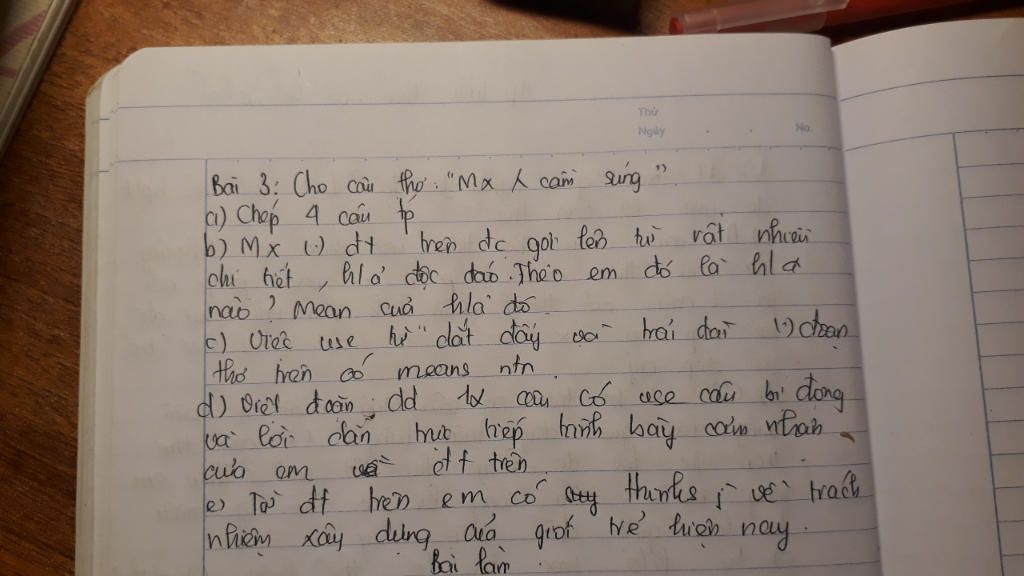 Thứ
Ngày . . No.
Bài 3: Cho câu thơ: "Mx người cầm súng"
a) Chép 4 câu tp
b) Mx (.) đt trên đc gợi lên từ rất nhiều
chi tiết, h/ả độc đáo. Theo em đó là h/ả
nào? Mean của h/ả đó.
c) Việc use từ "dắt đầy và trải dài (.) đoạn
thơ trên có means ntn.
d) Viết đoạn dd 12 câu có use câu bị động
và lời dẫn trực tiếp trình bày cảm nhận
của em về đt trên.
e) Từ đt trên em có thinks j về trách
nhiệm xây dựng của giới trẻ hiện nay.
Bài làm.